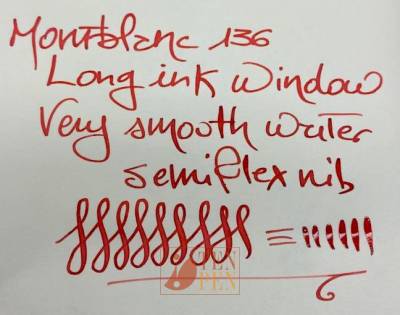 Montblanc 136
Long ink window
Very smooth writer
semiflex nib
TEN
PEN